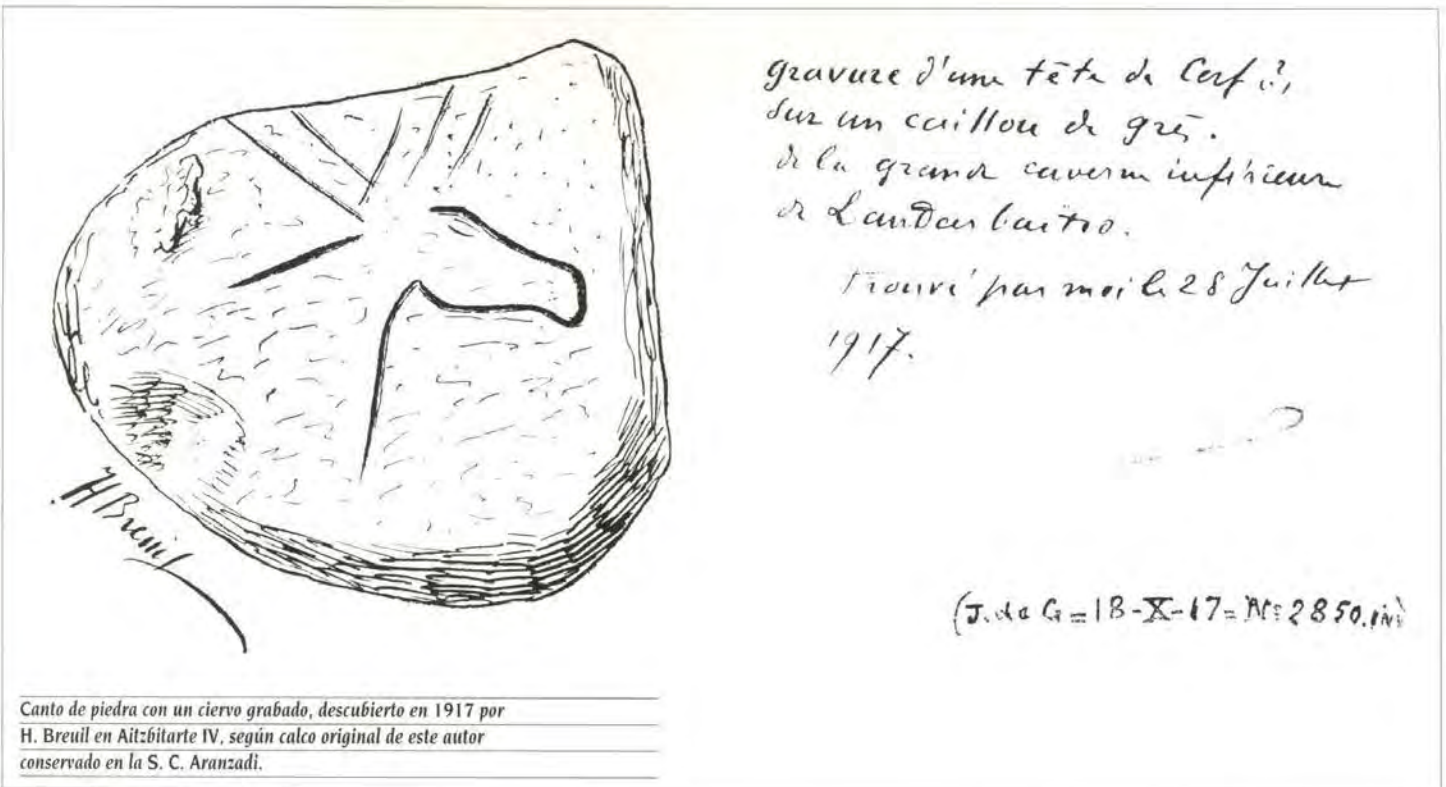 gravure d'une tête de Cerf ?,
sur un caillou de grès.
de la grande caverne inférieure
de Landarbaitso.
trouvé par moi le 28 Juillet
1917.
H Breuil
(J. de G = 18-X-17 = Nº 2850.
Canto de piedra con un ciervo grabado, descubierto en 1917 por
H. Breuil en Aitzbitarte IV, según calco original de este autor
conservado en la S. C. Aranzadi.